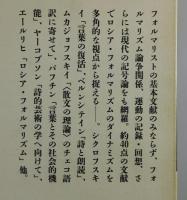 フォルマリストの基本文献のみならず、フォ
ルマリズム論争関係、運動の記録・回想、さ
らには現代の記号論をも網羅、約40点の文献
によってロシア・フォルマリズムのダイナミズムを
多角的な視点から捉える──。シクロフスキ
イ「言葉の復活」、ベルンシテイン「詩と朗読」、
ムカジョフスキイ「《散文の理論》のチェコ語
訳に寄せて」、バフチン「言葉とその社会的機
能」、ヤーコブソン「詩的芸術の学へ向けて」、
エールリヒ「ロシア・フォルマリズム」他。